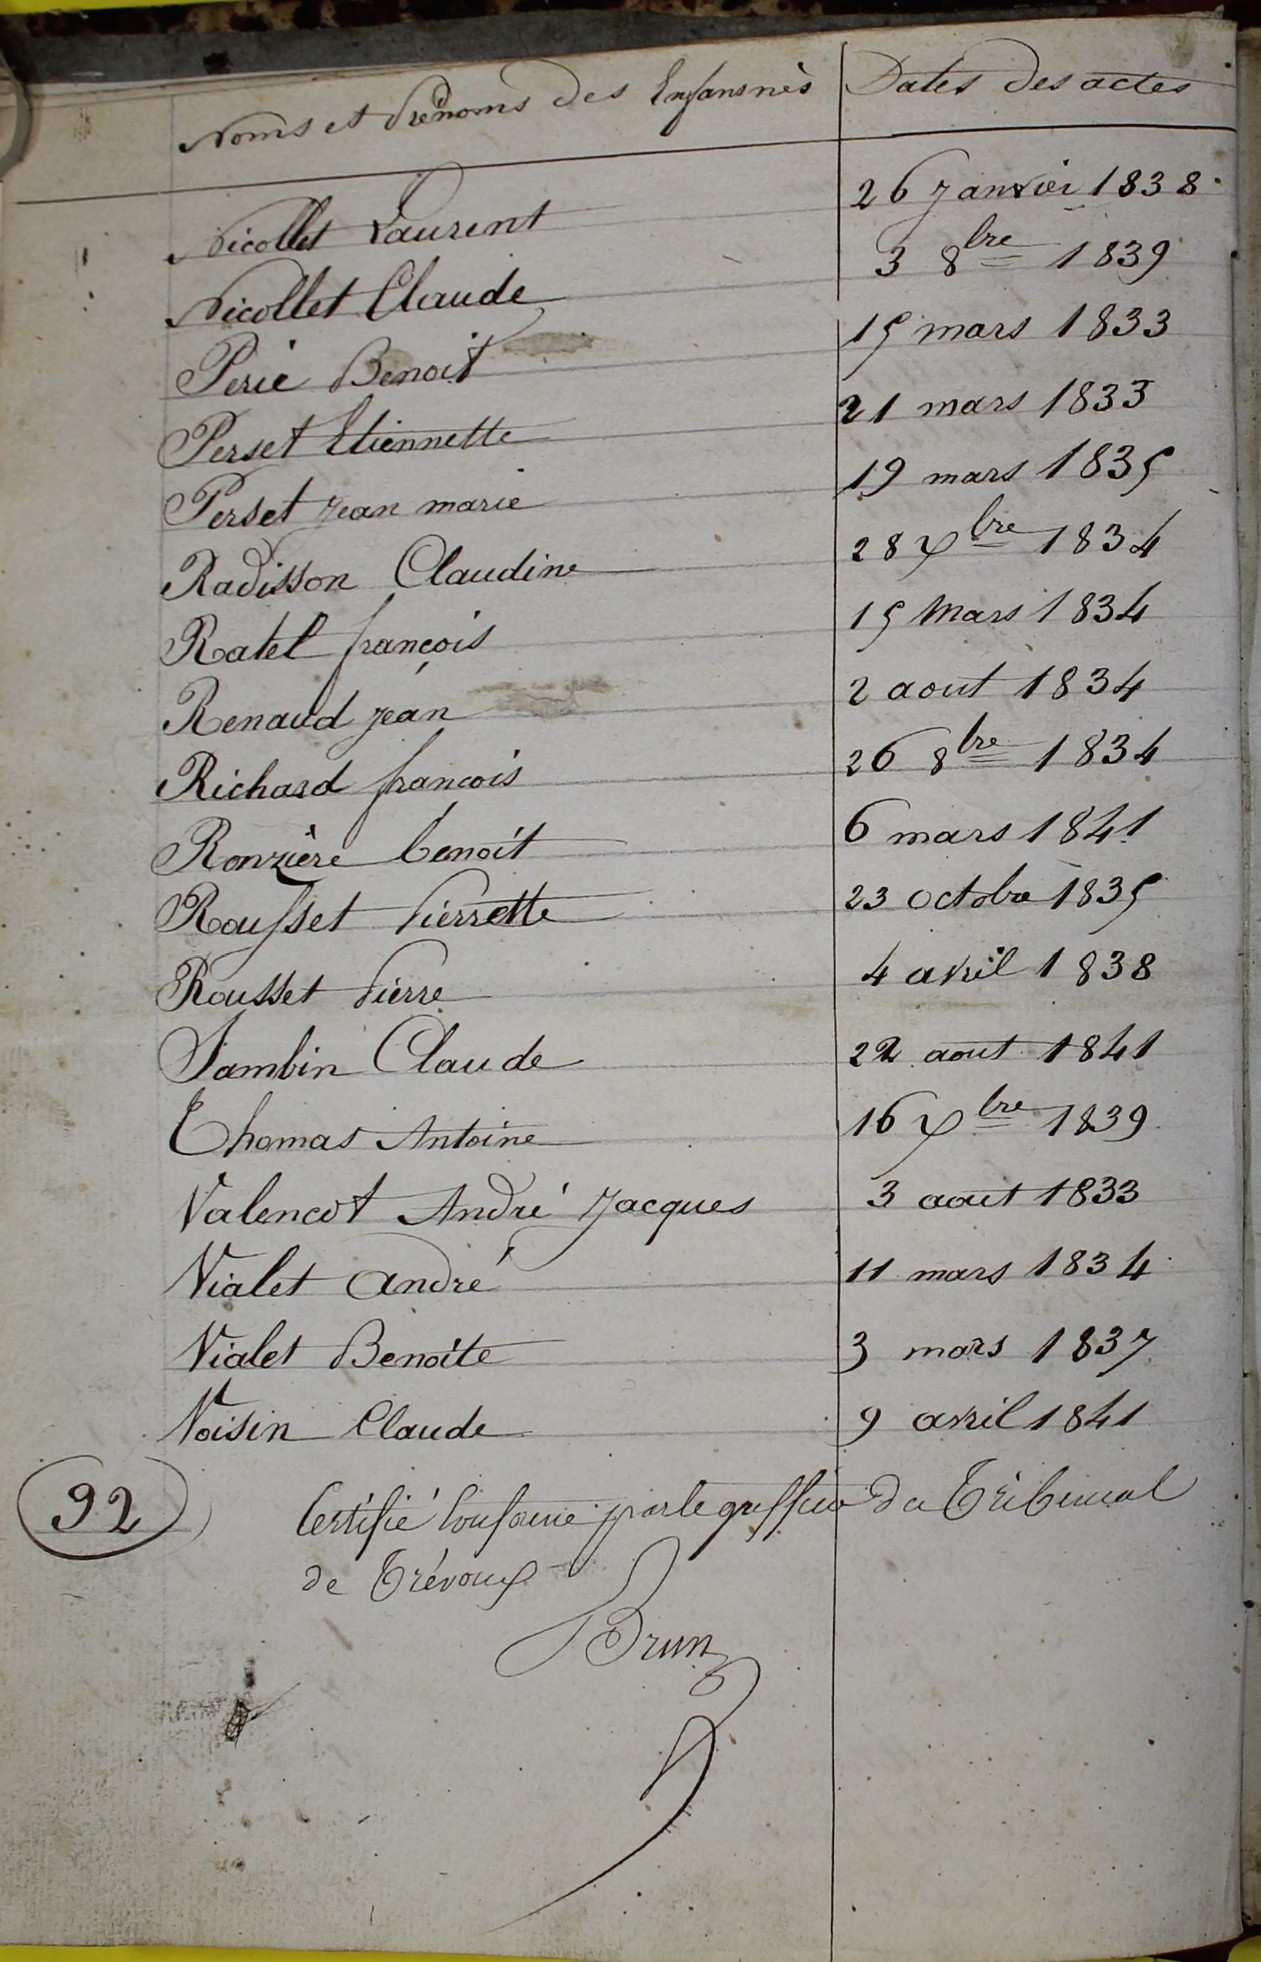 Noms et Prénoms des Enfans nés Dates des actes
Nicollet Laurent 26 Janvier 1838
Nicollet Claude 3 8bre 1839
Perié Benoit 15 mars 1833
Perset Etiennette 21 mars 1833
Perset Jean marie 19 mars 1835
Radisson Claudine 28 Xbre 1834
Ratel françois 15 Mars 1834
Renaud Jean 2 aout 1834
Richard francois 26 8bre 1834
Ronzière benoit 6 mars 1841
Rousset Pierrette 23 octobre 1835
Rousset Pierre 4 avril 1838
Sambin Claude 22 aout 1841
Thomas Antoine 16 Xbre 1839
Valencot André Jacques 3 aout 1833
Vialet andré 11 mars 1834
Vialet Benoite 3 mars 1837
Voisin Claude 9 avril 1841
92
Certifié Conforme par le greffier du Tribunal
de Trévoux
Brun